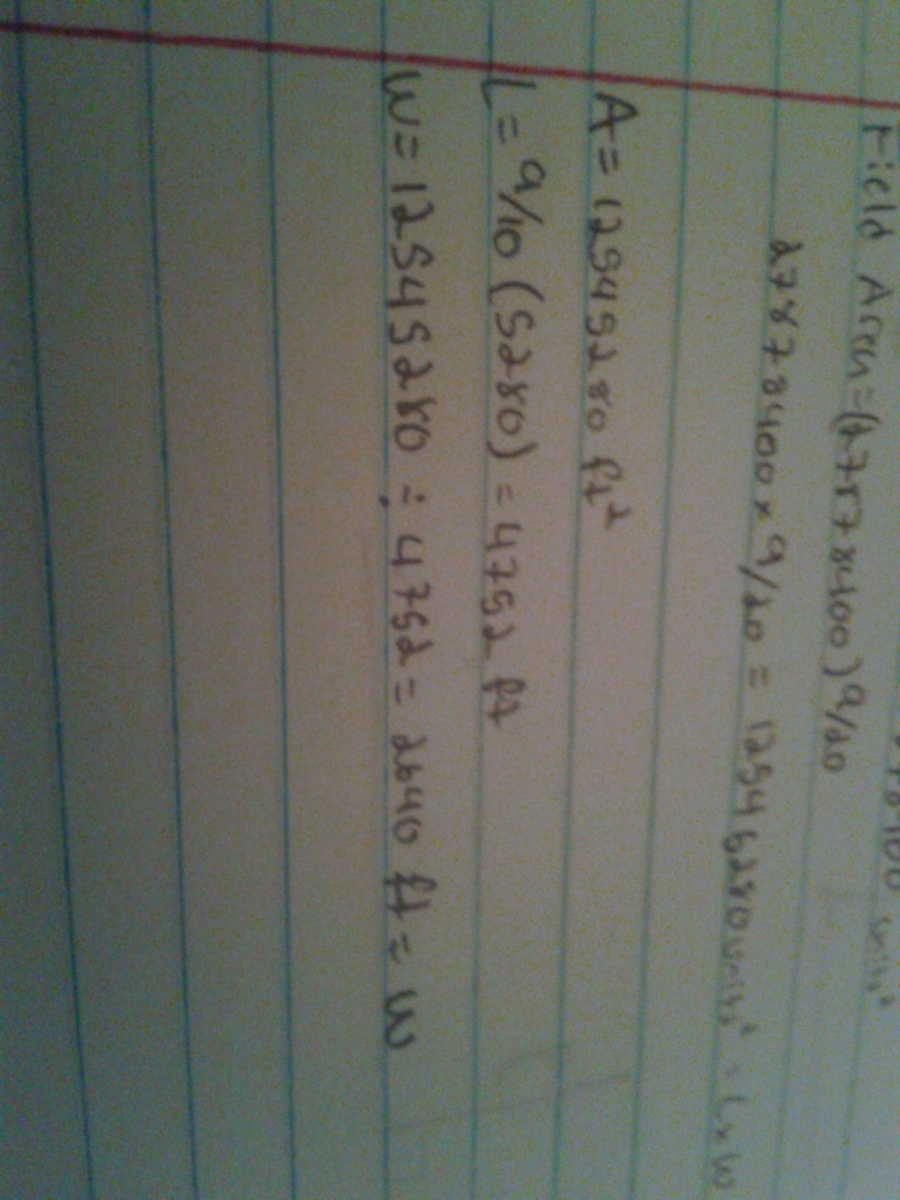 units²
Field Area = (27878400) 9/20
27878400 × 9/20 = 12545280 units² = L × W
A = 12545280 ft²
L = 9/10 (5280) = 4752 ft
W = 12545280 ÷ 4752 = 2640 ft = W